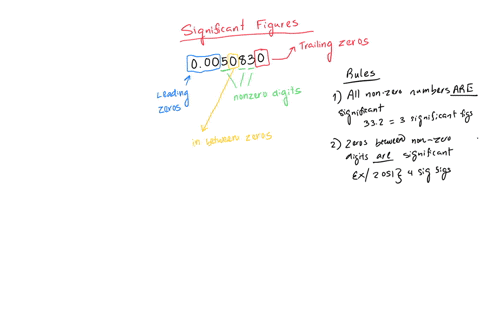 Significant Figures
0.0050830
Trailing zeros
Leading
zeros
nonzero digits
in between zeros
Rules
1) All non-zero numbers ARE
significant
33.2 = 3 significant figs
2) Zeros between non-zero
digits are significant
Ex/ 2051} 4 sig figs